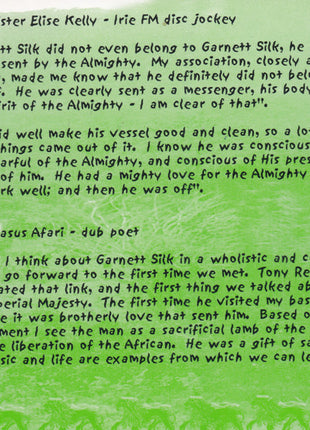 ster Elise Kelly - Irie FM disc jockey
ett Silk did not even belong to Garnett Silk, he
sent by the Almighty. My association, closely a
, made me know that he definitely did not belo
f. He was clearly sent as a messenger, his body
irit of the Almighty - I am clear of that".
id well make his vessel good and clean, so a lot
things came out of it. I know he was conscious
arful of the Almighty, and conscious of His pres
of him. He had a mighty love for the Almighty
rk well; and then he was off".
asus Afari - dub poet
I think about Garnett Silk in a wholistic and c
go forward to the first time we met. Tony Re
ated that link, and the first thing we talked abo
perial Majesty. The first time he visited my bas
e it was brotherly love that sent him. Based o
ment I see the man as a sacrificial lamb of the
e liberation of the African. He was a gift of sa
sic and life are examples from which we can le